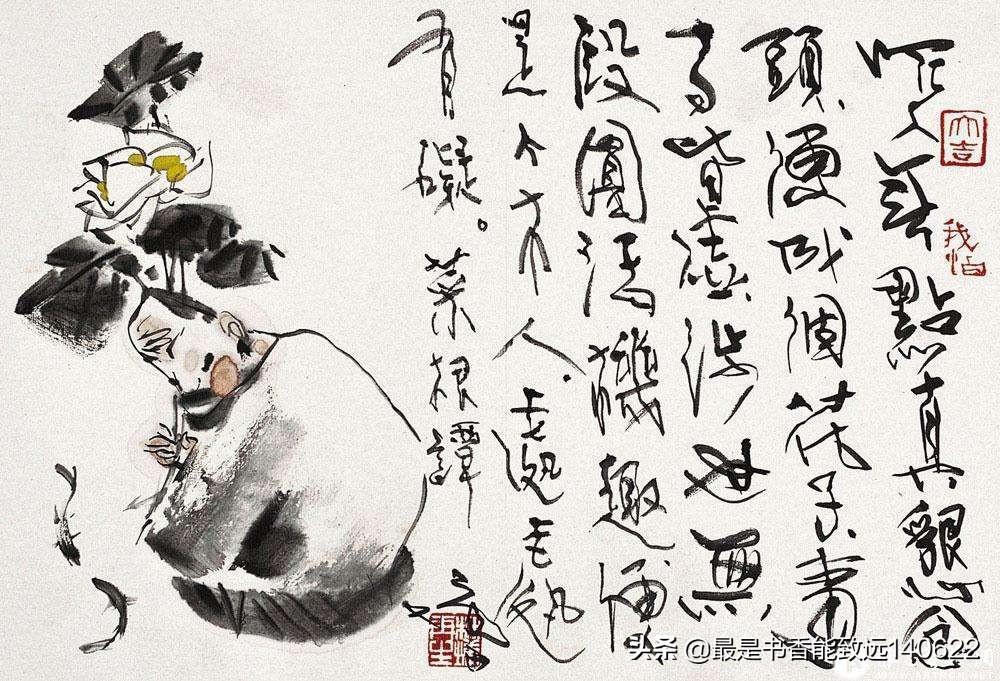 作人無點真懇念
頭、便成個花子、事
事皆虛、涉世無
段圓活機趣、便
是个木人.處處
有礙。菜根譚
大吉
头条 @最是书香能致远140622